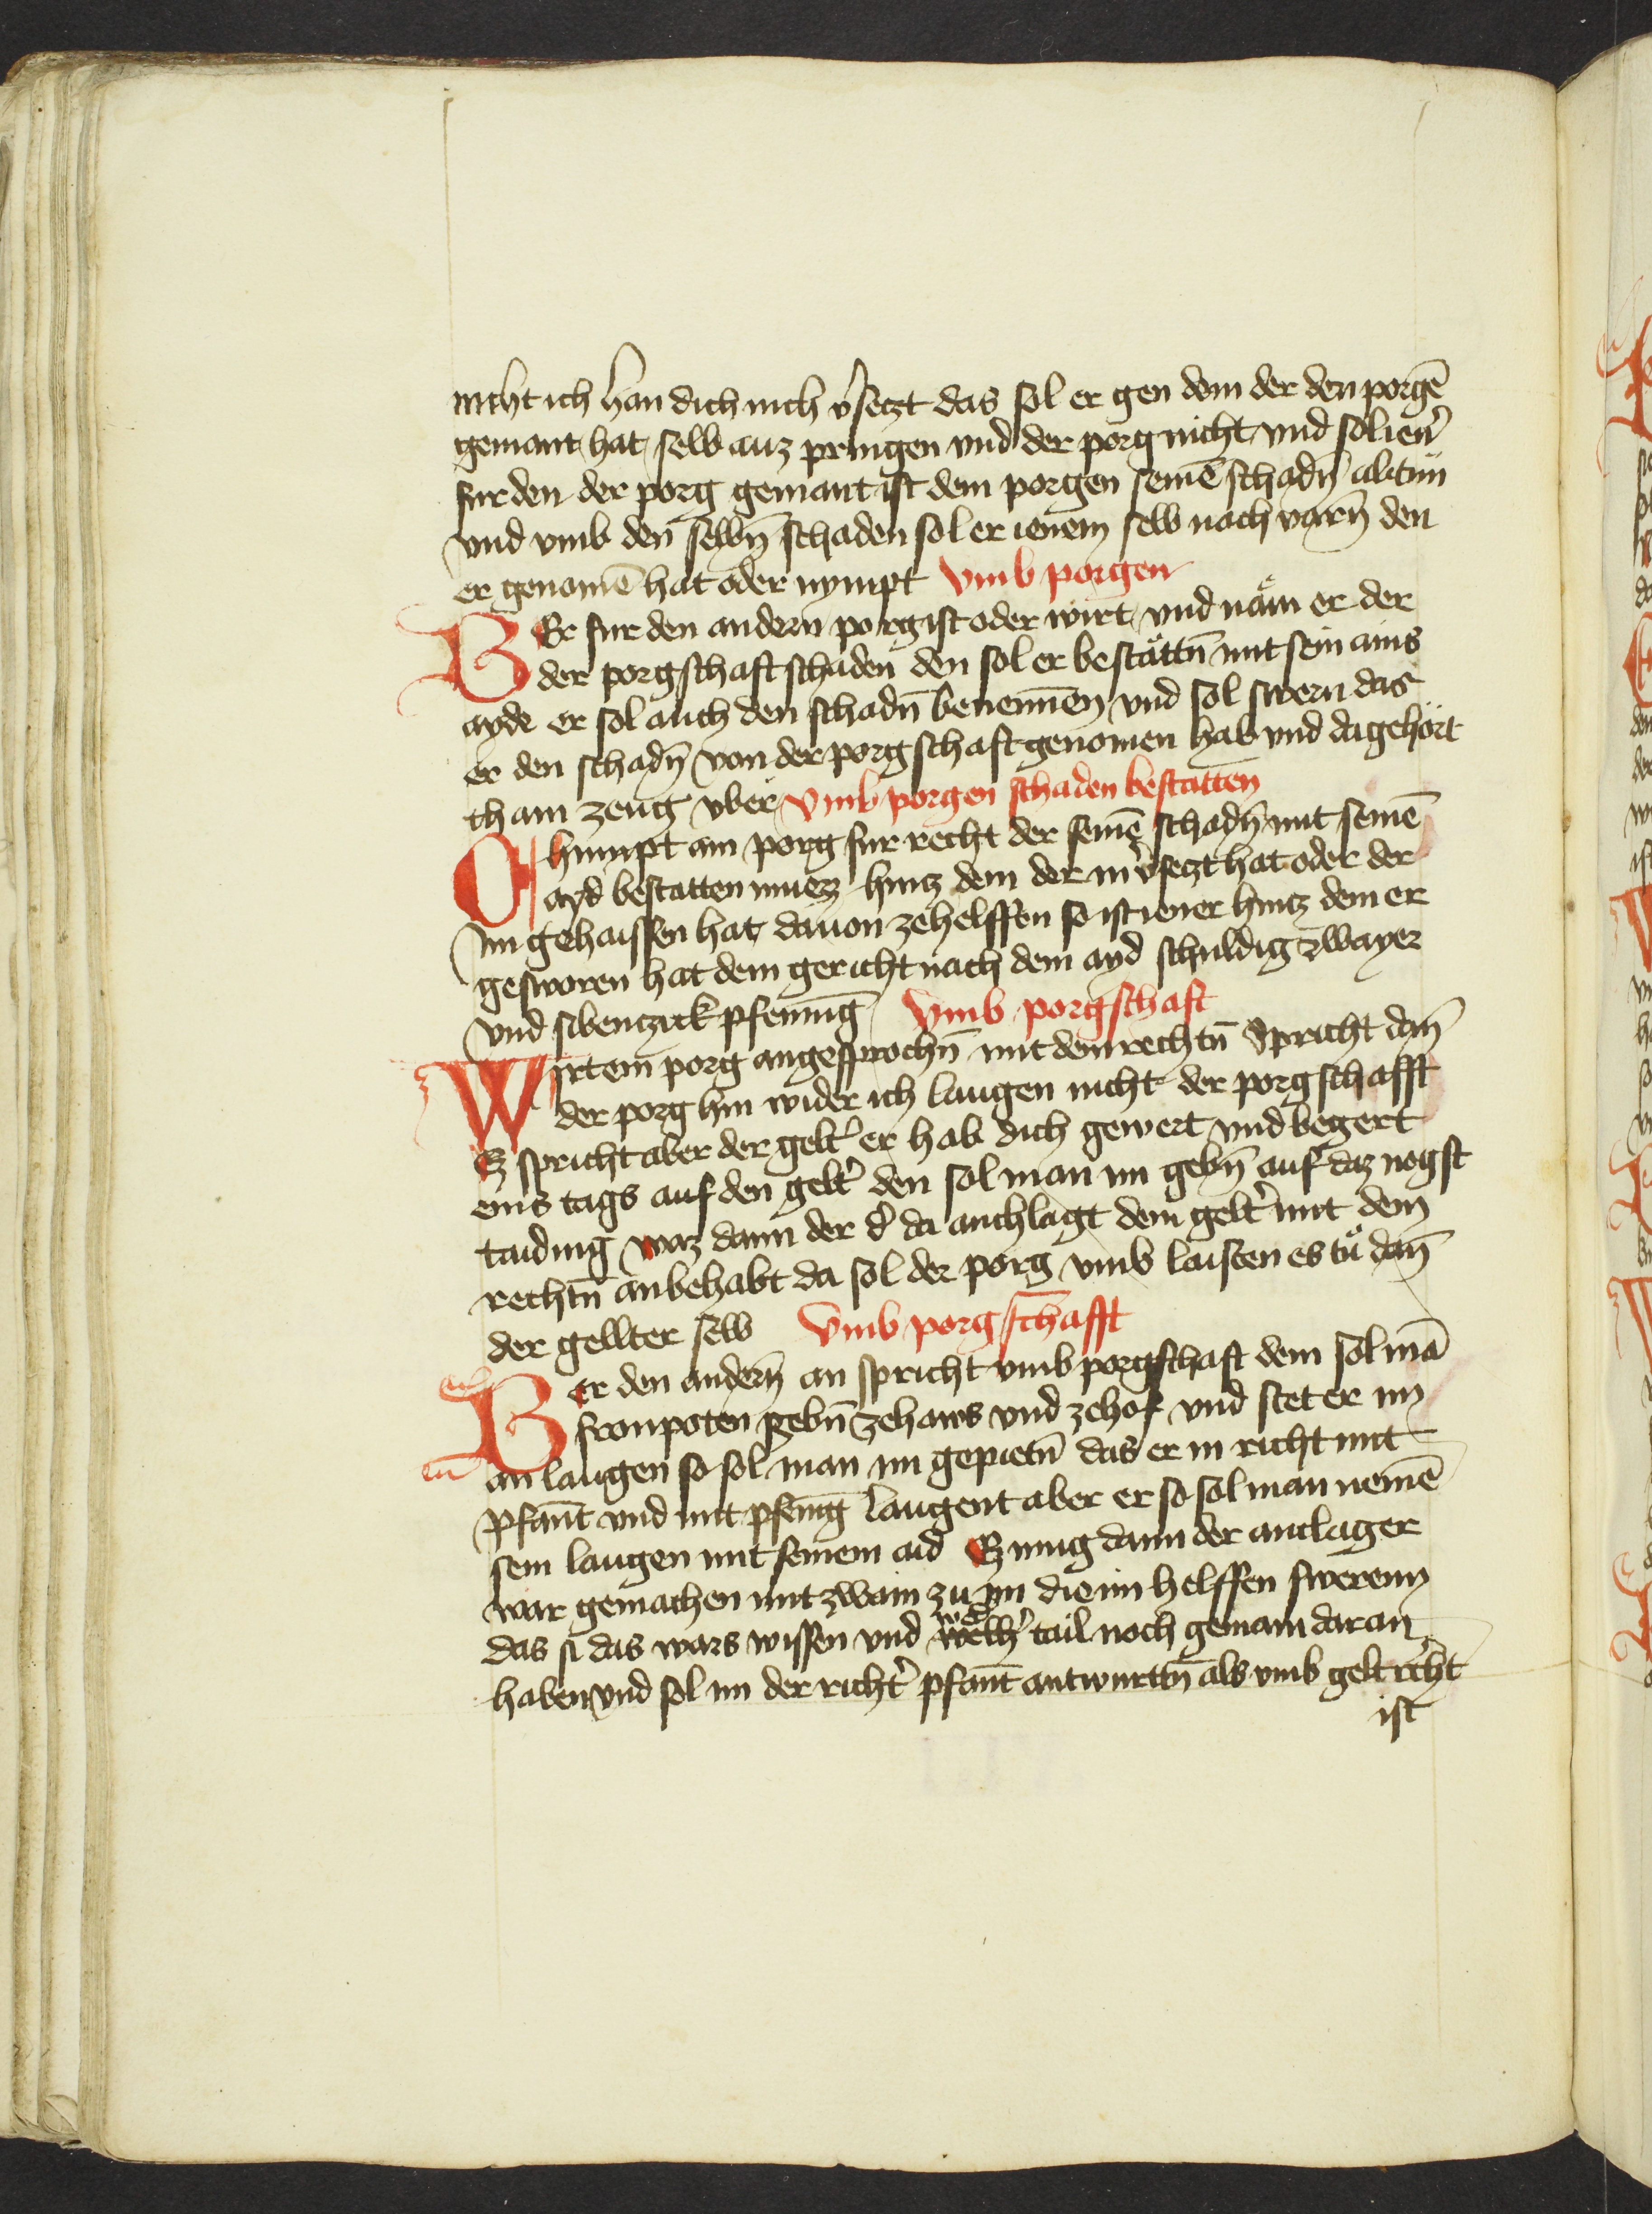 nicht ich han dich nich v̉seczt das sol er gen dem der den porgē
gemant hat selb auz pringen vnd der porg nicht vnd sol ien̉
fur den der porg gemant ist dem porgen seinē schadn̄ abtun
vnd vmb den selbn̄ schaden sol er ienem selb nach varn̄ den
er genomē hat oder nympt Vmb porgen
BEr fur den andern porg ist oder wirt vnd näm er der
der porgschaft schaden den sol er bestättn̄ mit sein ains
ayde er sol auch den schadn̄ benennen vnd sol swern das
er den schadn̄ von der porgschaft genomen hab vnd da gehört
chain zeug vber Vmb porgen schaden bestatten
Chumpt ain porg fur recht der seinē schadn̄ mit seinē
ayd bestatten muez hincz dem der in v̉seczt hat oder der
im gehaissen hat dauon zehelffen so ist iener hincz dem er
gesworen hat dem gericht nach dem ayd schuldig zwayer
vnd sibenczick pfennīg Vmb porgschaft
Wirt ein porg angesprochn̄ mit dem rechtn̄ Spricht dan̄
der porg hin wider ich laugen nicht der porgschafft
Ez spricht aber der gelt̉ er hab dich gewert vnd begert
eins tags auf den gelt̉ den sol man im gebn̄ auf daz nagst
taiding waz dann der d̉ da anchlagt dem gelt̉ mit dem
rechtn̄ anbehabt da sol der porg vmb laisten es tů dan̄
der gellter selb Vmb porgschafft
Ber den andern̄ an spricht vmb porgschaft dem sol mā
fronpoten gebn̄ ze haws vnd zehof vnd stet er im
an laugen so sol man im gepietn̄ das er in richt mit
pfant vnd mit pfenīg laugent aber er so sol man nemē
sein laugen mit seinem aid Ez mug dann der anclager
war gemachen mit zwain zu im die im helffen sweren
das si das wars wissen vnd welh̉ tail noch gemain daran
haben vnd sol im der richt̉ pfant antwurttn̄ als vmb gelt recht
ist